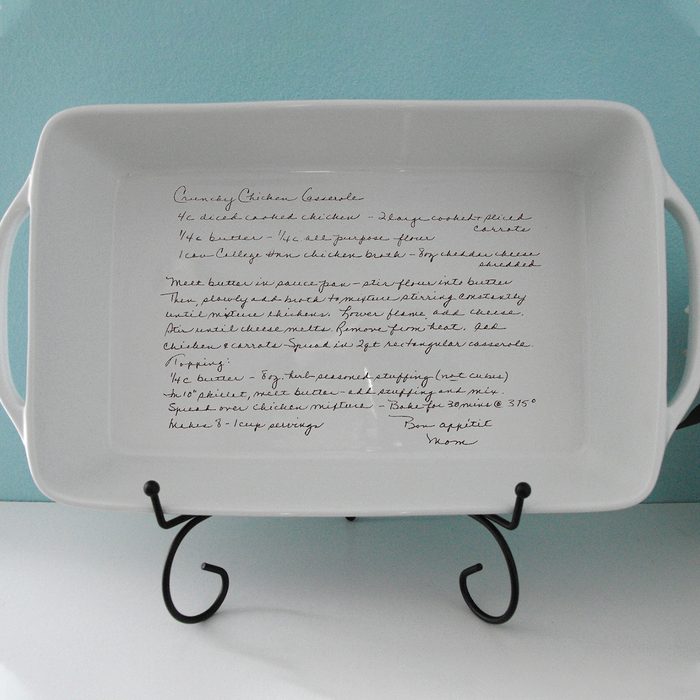 Crunchy Chicken Casserole
4c diced cooked chicken - 2 large cooked + sliced
carrots
1/4 c butter - 1/4 c all purpose flour
1 can College Inn chicken broth - 8oz cheddar cheese
shredded
Melt butter in sauce pan - stir flour into butter
Then, slowly add broth to mixture stirring constantly
until mixture thickens. Lower flame, add cheese.
Stir until cheese melts. Remove from heat. Add
chicken & carrots - Spread in 2qt rectangular casserole.
Topping:
1/4 c butter - 8oz. herb seasoned stuffing (not cubes)
In 10" skillet, melt butter - add stuffing and mix.
Spread over chicken mixture - Bake for 30 mins @ 375°
Makes 8 - 1 cup servings
Bon appétit
Mom